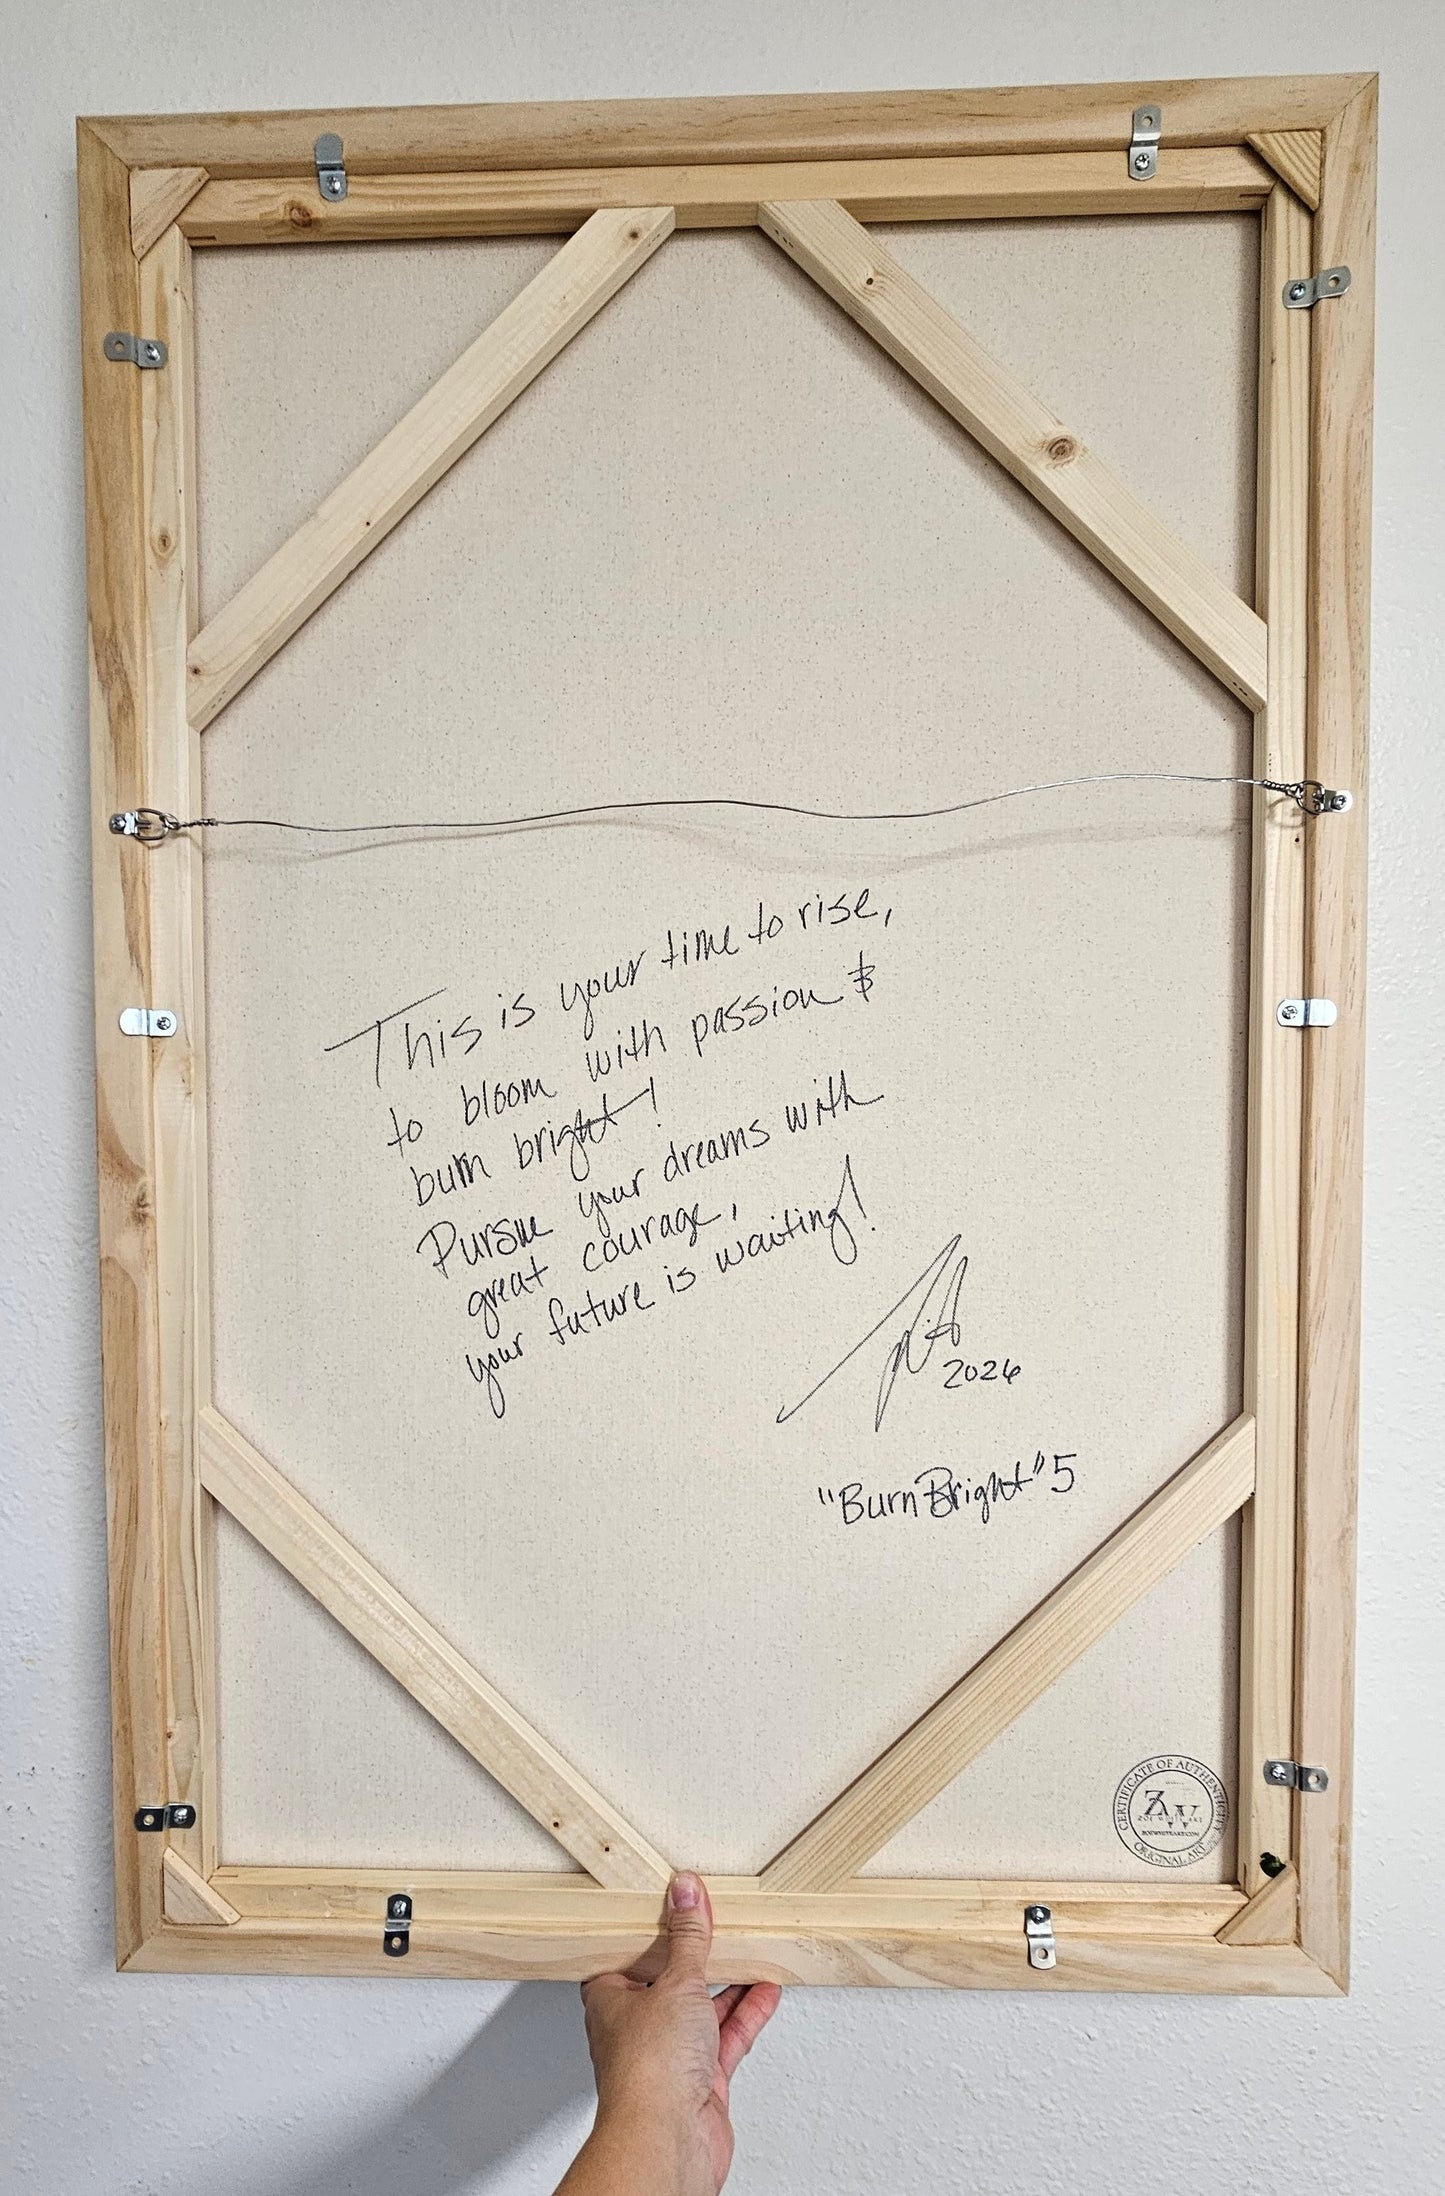 This is your time to rise,
to bloom with passion &
burn bright!
Pursue your dreams with
great courage,
your future is waiting!
2026
"Burn Bright" 5
CERTIFICATE OF AUTHENTICITY
ZW
ZOE WHITE ART
ZOEWHITEART.COM
ORIGINAL ART